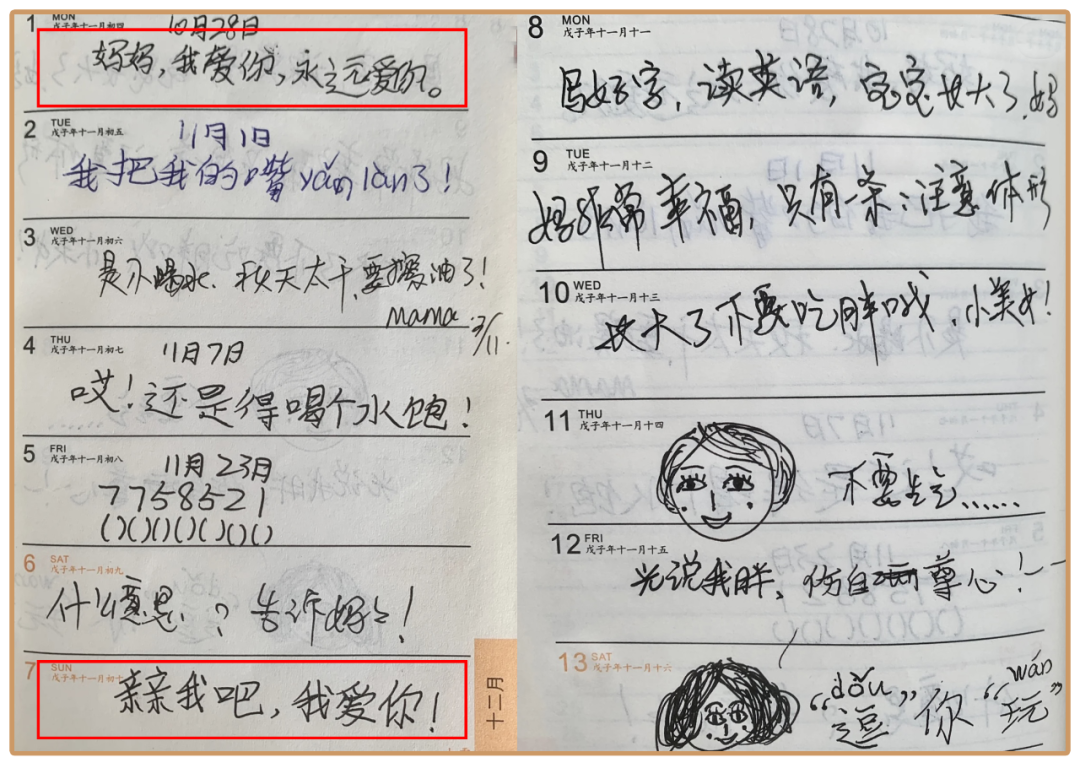 1 MON
戊子年十一月初四
10月28日
妈妈,我爱你,永远爱你。
2 TUE
戊子年十一月初五
11月1日
我把我的嘴yán lan了!
3 WED
戊子年十一月初六
是小喝水、秋天太干,要擦油了!
mama 3/11.
4 THU
戊子年十一月初七
11月7日
哎!还是得喝个水饱!
5 FRI
戊子年十一月初八
11月23日
7758521
()()()()()()()
6 SAT
戊子年十一月初九
什么意思?告诉妈妈!
7 SUN
戊子年十一月初十
亲亲我吧,我爱你!
十二月
8 MON
戊子年十一月十一
写好字,读英语,宝宝长大了,妈
9 TUE
戊子年十一月十二
妈非常幸福,只有一条:注意体形
10 WED
戊子年十一月十三
长大了不要吃胖哦,小美女!
11 THU
戊子年十一月十四
不要生气……
12 FRI
戊子年十一月十五
光说我胖,伤自尊心!
13 SAT
戊子年十一月十六
“dǒu” “wán”
逗你玩